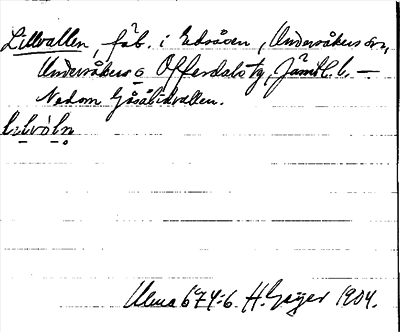 Lillvallen, fäb. i Edsåsen, Undersåkers sn,
Undersåkers o Offerdals tg, Jämtl. l. —
Nedom Gåsålidvallen.
Ulma 674:6. H. Geijer 1904.